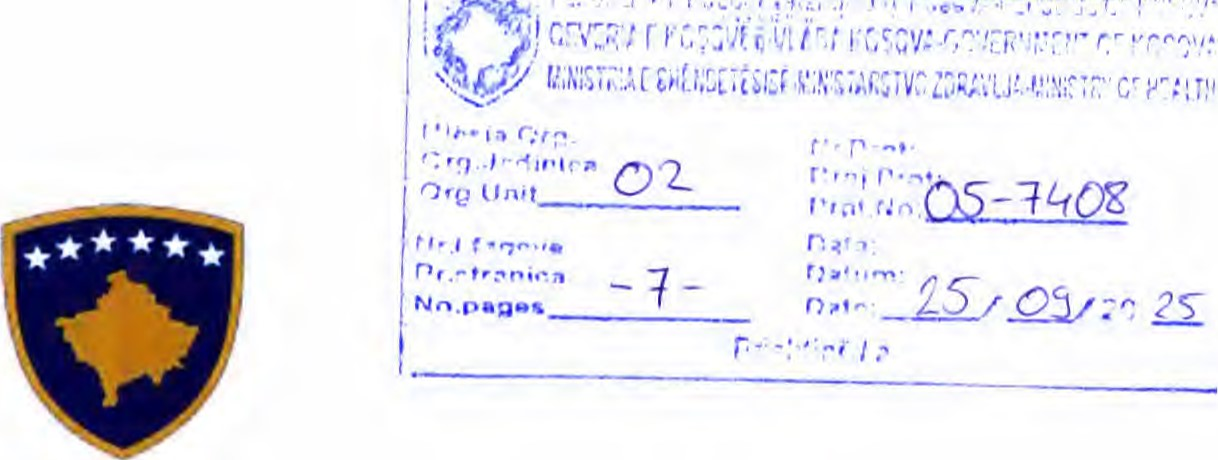 QEVERIA E KOSOVËS-VLADA KOSOVA-GOVERNMENT OF KOSOVA
MINISTRIA E SHËNDETËSISË-MINISTARSTVO ZDRAVLJA-MINISTRY OF HEALTH
Org.Jedinica
Org.Unit 02
Prot.No. 05-7408
Nr.i faqeve
Br.stranica
No.pages -7-
Data:
Datum:
Date: 25/09/20 25